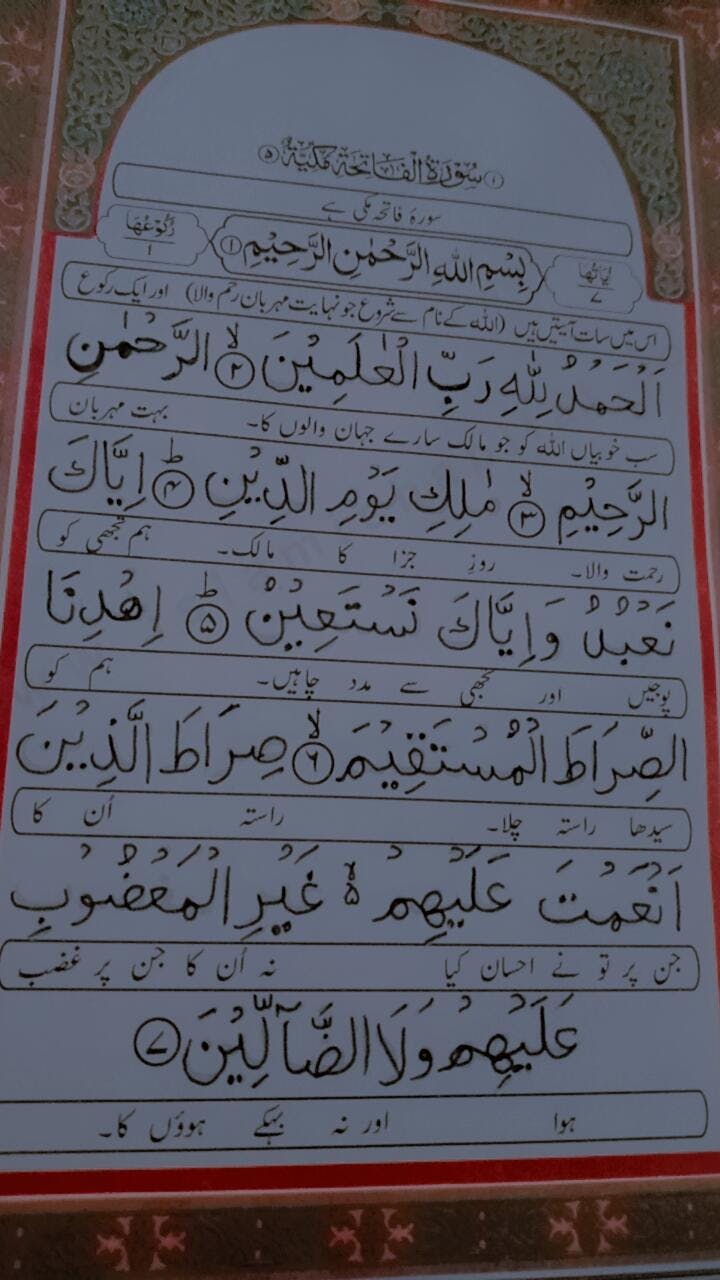 ﴿۱﴾ سُوْرَةُ الْفَاتِحَةِ مَكِّيَّةٌ ﴿۵﴾
سورۂ فاتحہ مکی ہے
اٰيَاتُهَا ٧
بِسْمِ اللهِ الرَّحْمٰنِ الرَّحِيْمِ ﴿۱﴾
رُكُوْعُهَا ١
اس میں سات آیتیں ہیں (اللہ کے نام سے شروع جو نہایت مہربان رحم والا) اور ایک رکوع
اَلْحَمْدُ لِلّٰهِ رَبِّ الْعٰلَمِيْنَ ۙ﴿۲﴾ الرَّحْمٰنِ
سب خوبیاں اللہ کو جو مالک سارے جہان والوں کا۔ بہت مہربان
الرَّحِيْمِ ۙ﴿۳﴾ مٰلِكِ يَوْمِ الدِّيْنِ ؕ﴿۴﴾ اِيَّاكَ
رحمت والا۔ روزِ جزا کا مالک۔ ہم تجھی کو
نَعْبُدُ وَ اِيَّاكَ نَسْتَعِيْنُ ؕ﴿۵﴾ اِهْدِنَا
پوجیں اور تجھی سے مدد چاہیں۔ ہم کو
الصِّرَاطَ الْمُسْتَقِيْمَ ۙ﴿۶﴾ صِرَاطَ الَّذِيْنَ
سیدھا راستہ چلا۔ راستہ اُن کا
اَنْعَمْتَ عَلَيْهِمْ ۙ۬ غَيْرِ الْمَغْضُوْبِ
جن پر تو نے احسان کیا نہ اُن کا جن پر غضب
عَلَيْهِمْ وَلَا الضَّآلِّيْنَ ﴿۷﴾
ہوا اور نہ بہکے ہوؤں کا۔